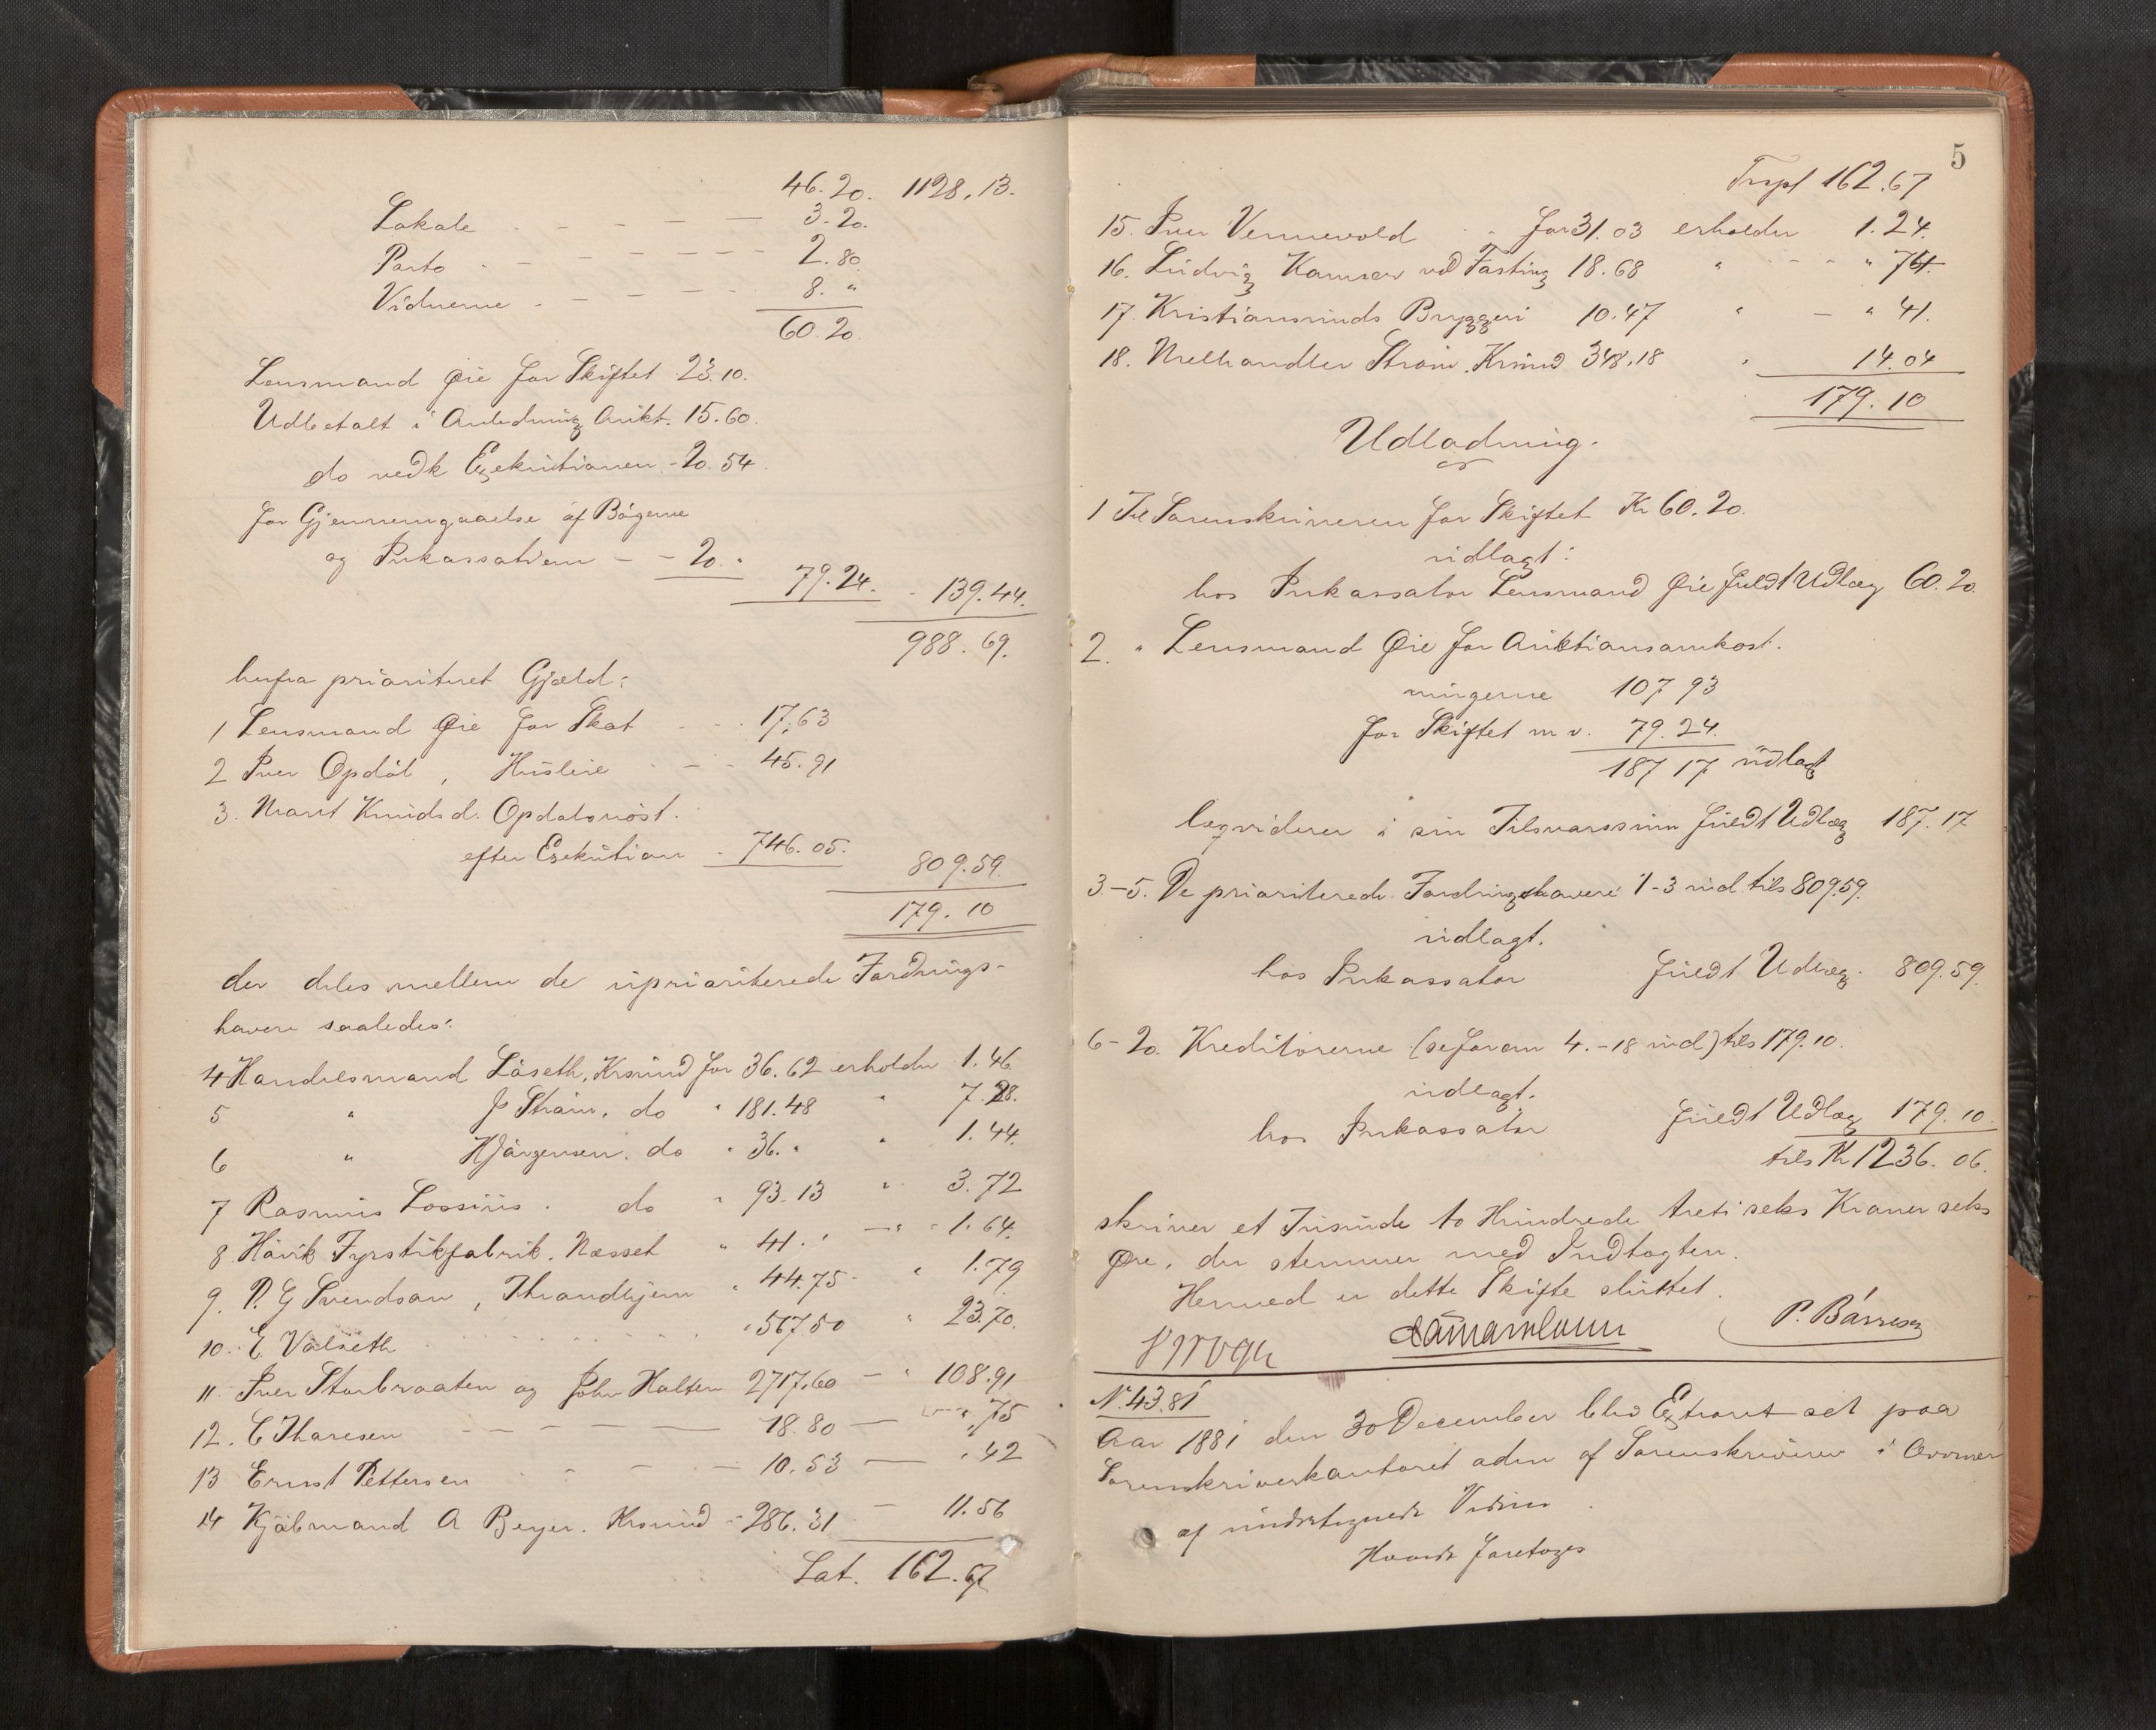 46.20. 1128.13.
Lokale - - - 3.20.
Porto - - - - - 2.80
Vidnerne - - - - - 8. "
60.20.
Lensmand Øie for Skiftet 23.10.
Udbetalt i Anledning Aukt. 15.60.
do vedk Exekutionen - 20.54.
for Gjennemgaaelse af Bøgerne
og Inkassation - - 20. "
79.24. - 139.44.
988.69.
herfra prioriteret Gjæld:
1 Lensmand Øie for Skat - - - 17.63
2 Iver Opdøl, Husleie - - - 45.91
3. Marit Knudsd. Opdølsnøst.
efter Exekution - 746.05.
809.59.
179.10
der deles mellem de uprioriterede Fordrings-
havere saaledes:
4 Handelsmand Løseth, Krsund for 36.62 erholder 1.46
5 " J Strøm, do " 181.48 " 7.28.
6 " H Jørgensen. do " 36. " " 1.44.
7 Rasmus Lossius. do " 93.13 " 3.72
8. Hävik Fyrstikfabrik. Næsset " 41. " - " 1.64.
9. P. G Svendsen, Throndhjem " 44.75 - " 1.79
10. E. Välsëth - - - " 567.50 " 23.70.
11. Iver Storbraaten og John Halten 2717.60 - " 108.91
12. C Thoresen - - - - 18.80 - - " .75
13 Ernst Pettersen - - - - 10.53 - " 42
14 Kjøbmand A Beyer. Krsund - 286.31 - 11.56
Lat. 162.67
5
Trspt 162.67
15. Iver Vennevold - for 31.03 erholder 1.24.
16. Ludvig Hamser ved Fasting 18.68 " - - - " 74.
17. Kristiansunds Bryggeri 10.47 " - " 41.
18. Melhandler Strøm. Krsund 348.18 " 14.04
179.10
Udlodning.
1 Til Sorenskriveren for Skiftet Kr 60.20.
udlagt:
hos Inkassator Lensmand Øie fuldt Udlæg 60.20.
2. " Lensmand Øie for Auktionsomkost.
ningerne 107 93
for Skiftet m v. 79.24.
187 17 udlagt
liqviderer i sin Tilsvarssum fuldt Udlæg 187.17
3.-5. De prioriterede Fordringshavere 1-3 incl. tils 809.59.
udlagt.
hos Inkassator fuldt Udlæg. 809.59.
6-20. Kreditorerne (se foran 4.-18 incl) tils 179.10.
udlagt.
hos Inkassator fuldt Udlæg 179.10.
tils Kr 1236.06.
skriver et Tusinde to Hundrede treti seks Kroner seks
Øre, der stemmer med Indtægten.
Hermed er dette Skifte sluttet.
P. Børresen
N. 43.81
Aar 1881 den 30 December blev Extraret sat paa
Sorenskriverkontoret af Sorenskriveren i
af undertegnede Vidner
Hvorda foretoges